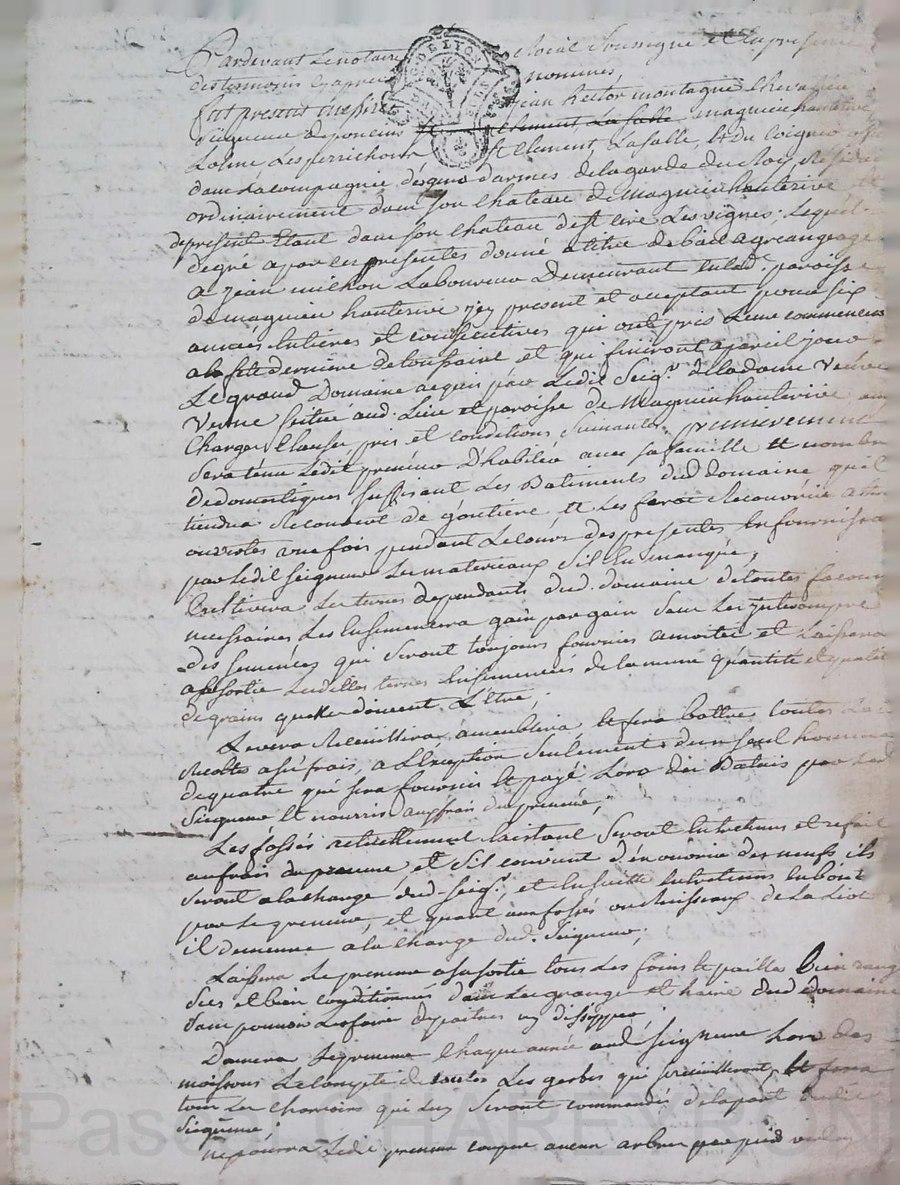 Pardevant Le notaire Roial Soussigné et En presence
des temoins Cy apres nommés,
fut present messire jean hector montagne Chevalier
Seigneur de poncins Clement, La Salle magnieu hauterive
St Clement, La Salle, et du Coignet
dans La Compagnie des gens d'armes de la garde du Roy, Residant
ordinairement dans Son Chateau de Magnieu hauterive
de present Etant dans Son Chateau d'est Les vignes; Lequel
degré a par ces presentes donné a titre de bail a grangeage
a jean milhon Laboureur Demeurant En lad. paroisse
de magnieu hauterive jcy present et acceptant pour Six
années Entieres et consecutives qui ont pris Leur commencement
a la fete derniere de toussaint et qui finiront a pareil jour
Le grand Domaine acquis par Ledit Seigr. de la dame Veuve
Verne Scitué aud. Lieu et paroisse de Magnieu hauterive aux
Charges Clauses, prix et conditions Suivantes, premierement
Sera tenu Ledit preneur D'habiter avec Sa famille et nombre
de domestiques Suffisant Les Batiments dud. Domaine qu'il
tiendra Recouvert de goutiere et Les faire Recouvrir a
une fois pendant Le Cours des presentes En fournissant
par Ledit Seigneur Les materiaux S'il En manque;
Cultivera Les terres dependants dud. domaine de toutes facons
necessaires Les Ensemencera gain par gain Sans Les jnterrompre
des Semences qui Seront toujours fournies a moitié et Laissera
a Sa Sortie Lesdittes terres Ensemencées de la meme quantité et qualité
de grains qu'elles doivent L'être;
Levera Recueillira, ameublira, et fera battre toutes Les
Recoltes a Ses frais, a L'Exeption Seulement d'un Seul homme
de quatre qui Sera fourni et payé Lors des Batais par Led.
Seigneur et nourri aux frais du preneur;
Les fossés actuellement Existant Seront Entretenus et refait
au frais du preneur et S'il convient d'en ouvrir des neufs ils
Seront a la charge dud. Seigr, et Ensuitte Entretenus En bon
par Le preneur, et quant aux fossés ou Ruisseaux de La
il demeure a la Charge dud. Seigneur;
Laissera Le preneur a Sa Sortie tous Les foins et paille bien rang
Sées et bien conditionnés dans Les grange et haire dud domaine
Sans pouvoir Les faire depaitres ny dissipper;
Donnera Le preneur Chaque année aud. Seigneur hors des
moissons Le Compte de toutes Les gerbes qui Se cueilleront, Et fera
tous Les Charrois qui Luy Seront commandés de la part dudit
Seigneur;
Ne pourra Ledit preneur couper aucun arbre par pied
Pascal CHAREYRON